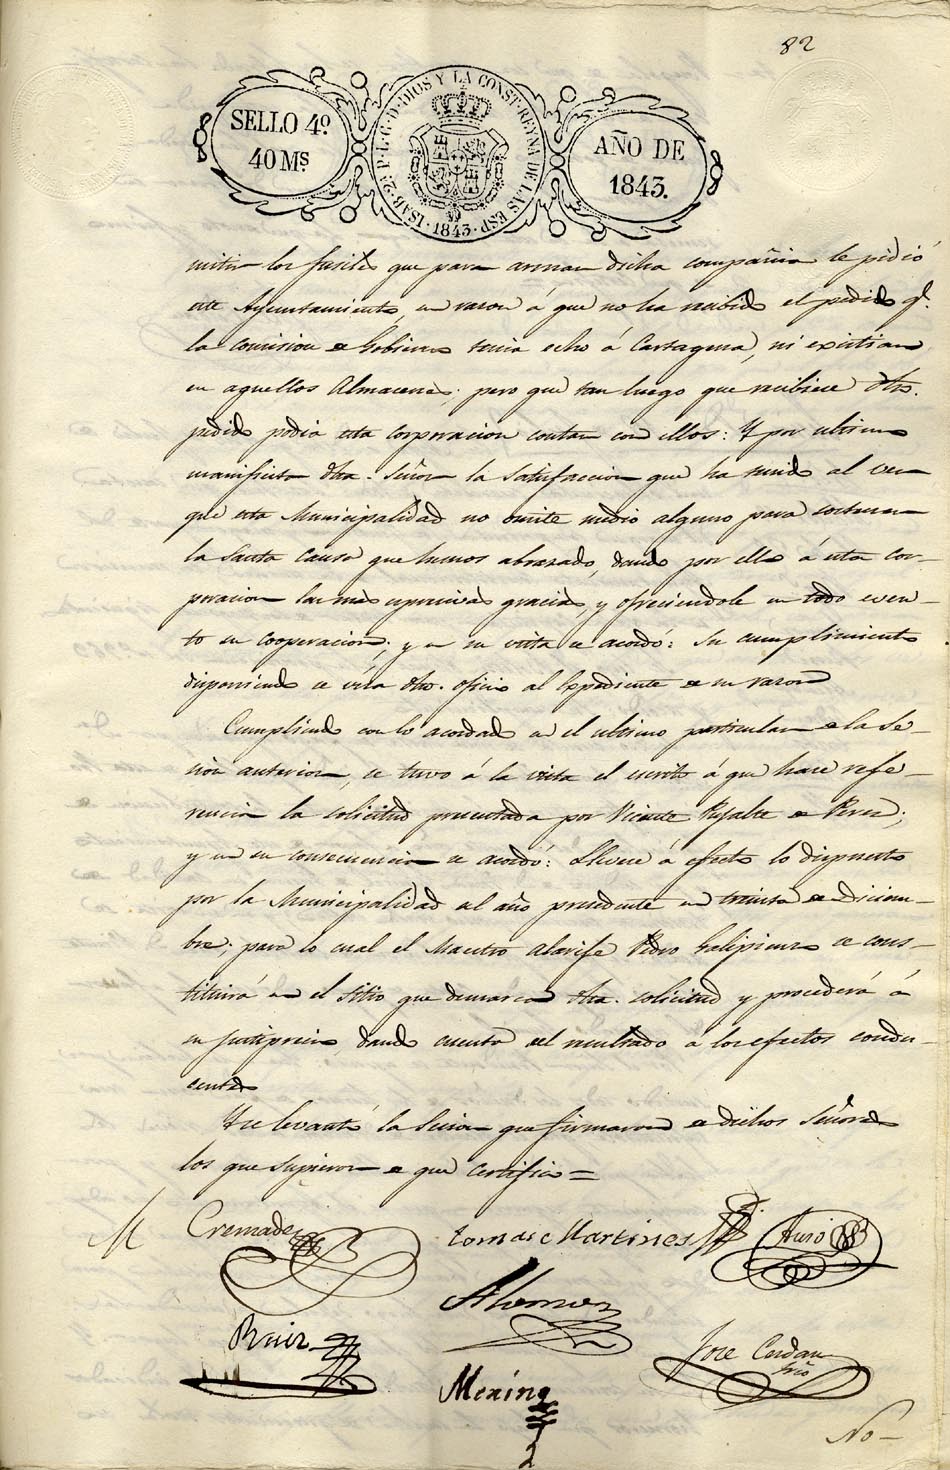 82
SELLO 4º.
40 Ms.
ISAB. 2ª. P. L. G. D. DIOS Y LA CONST. REYNA DE LAS ESP. 1843.
AÑO DE
1843.
mitir los fusiles que para armar dicha compañia le pidió
este Ayuntamiento, en razon á que no ha recibido el pedido q.
la Comision de Gobierno tenia echo á Cartagena, ni existian
en aquellos Almacenes; pero que tan luego que recibiese dho.
pedido podia esta corporacion contar con ellos: Y por ultimo
manifiesta dho. Señor la satisfaccion que ha tenido al ver
que esta Municipalidad no omite medio alguno para sostener
la Santa Causa que hemos abrazado, dando por ello á esta cor-
poracion las mas espresivas gracias, y ofreciendole en todo even-
to su cooperacion; y en su vista se acordó: Su cumplimiento
disponiendo se una dho. oficio al Expediente de su razon
Cumpliendo con lo acordado en el ultimo particular de la se-
sion anterior, se tuvo á la vista el escrito á que hace refe-
rencia la solicitud presentada por Vicente de Perez;
y en su consecuencia se acordó: Llevese á efecto lo dispuesto
por la Municipalidad el año precedente en treinta de Diciem-
bre; para lo cual el Maestro Alarife Pedro Galipienzo se cons-
tituirá en el sitio que demarca dha. solicitud y procederá á
su justiprecio, dando cuenta del resultado a los efectos condu-
centes
Y se levantó la Sesion que firmaron de dichos Señores
los que supieron de que certifico =
M Cremades Tomas Martines Auró
Alonso
Ruiz
Jose Cerdan
Srio
Mexina
No-